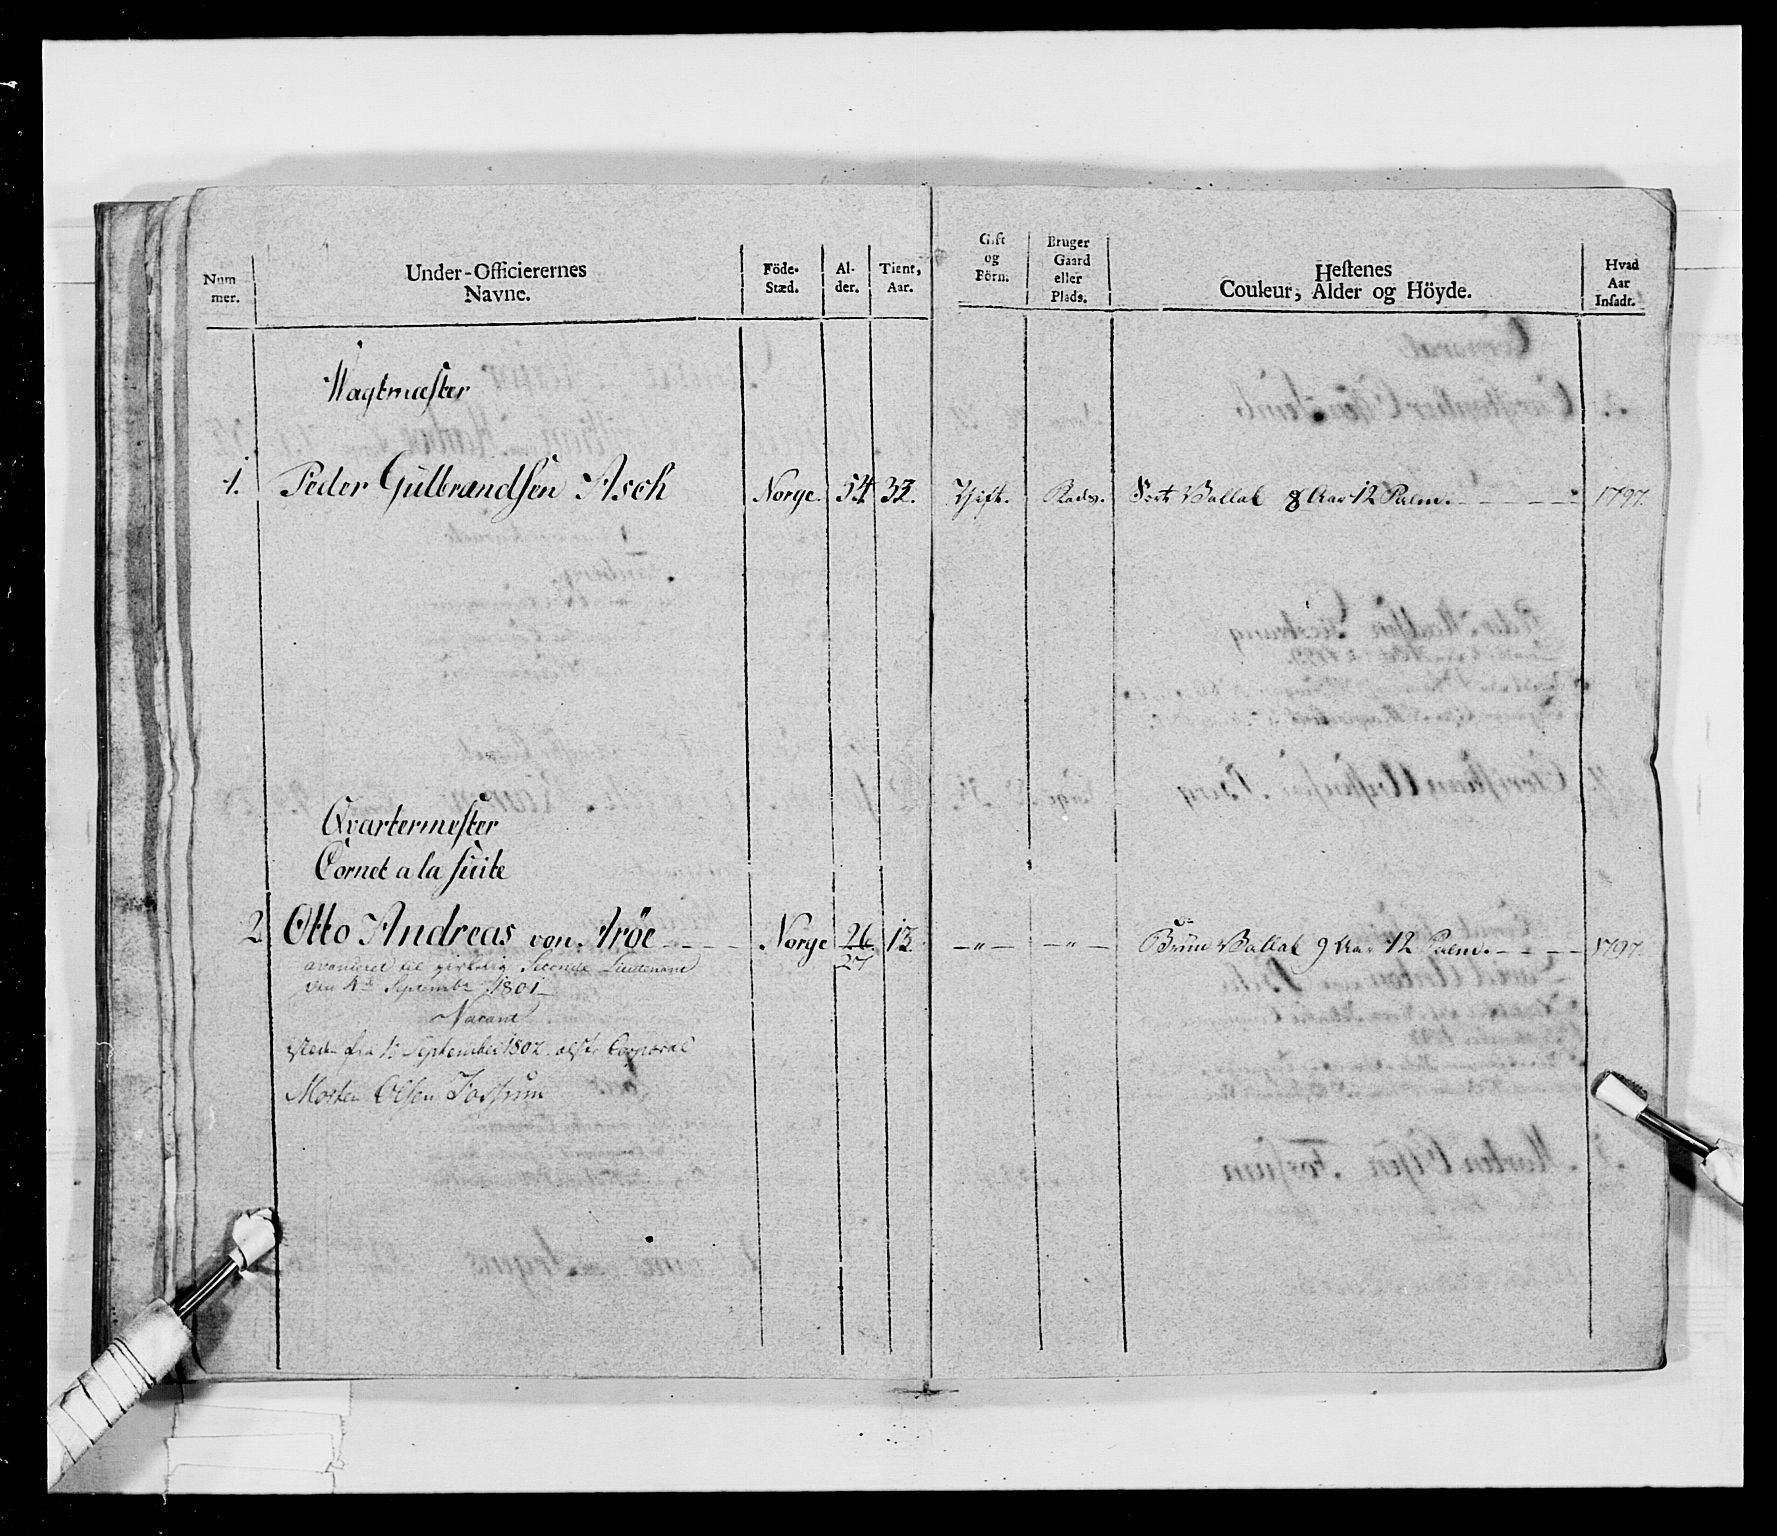 Num
mer.
Under-Officierernes
Navne.
Föde-
Stæd.
Al-
der.
Tient,
Aar.
Gift
og
Börn.
Bruger
Gaard
eller
Plads.
Hestenes
Couleur, Alder og Höyde.
Hvad
Aar
Indsadt.
Wagtmæster
1. Peder Gulbrandsen Asch Norge. 54 32. Gift. Sort Vallak 8 Aar 12 Palm. 1797.
Qvartermester
Cornet a la suite
2 Otto Andreas von Aröe Norge 26 13 -"- -"- Bruun Vallak 9 Aar 12 Palm. 1797.
27
avanceret til virkelig Seconde Lieutenant
den 4de Septembr 1801
Vacant
isteden fra 1 September 1802 Corporal
Morten Olsen Fossum